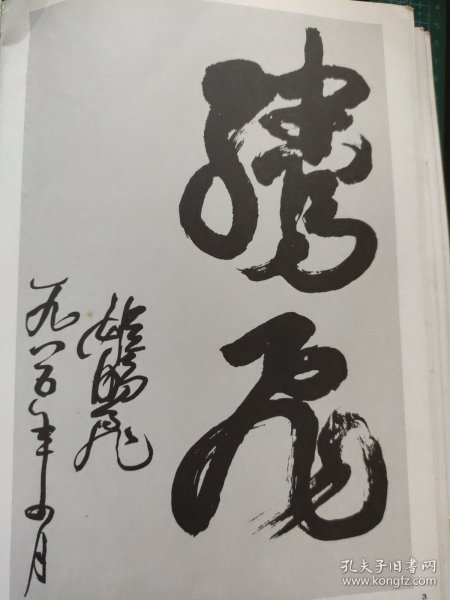 腾飞
姬鹏飞
一九八五年四月
3
孔夫子旧书网
www.kongfz.com